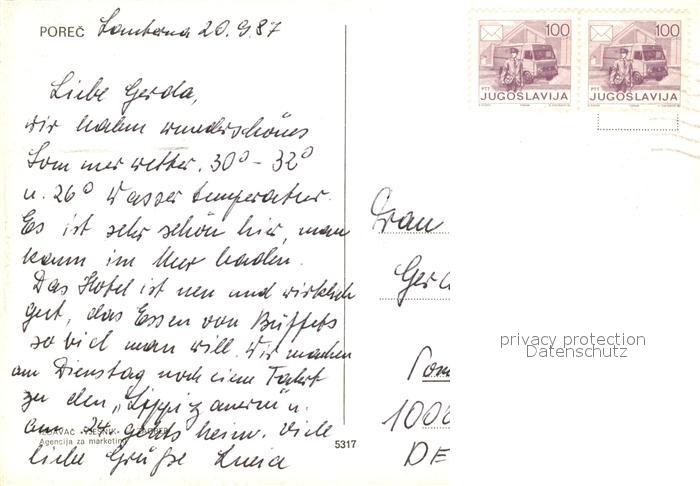 POREČ
20.9.87
Liebe Gerda,
wir haben wunderschönes
Sommerwetter. 30° - 32°
u. 26° Wassertemperatur.
Es ist sehr schön hier, man
kann im Meer baden.
Das Hotel ist neu und wirklich
gut, das Essen von Büffets
so viel man will. Wir machen
am Dienstag noch einen Fahrt
zu den „Lippizanern" u.
am 24. gehts heim. Viele
liebe Grüße
Agencija za marketing
5317
100 100
PTT JUGOSLAVIJA PTT JUGOSLAVIJA
Frau
Ger
1000
DE
privacy protection
Datenschutz